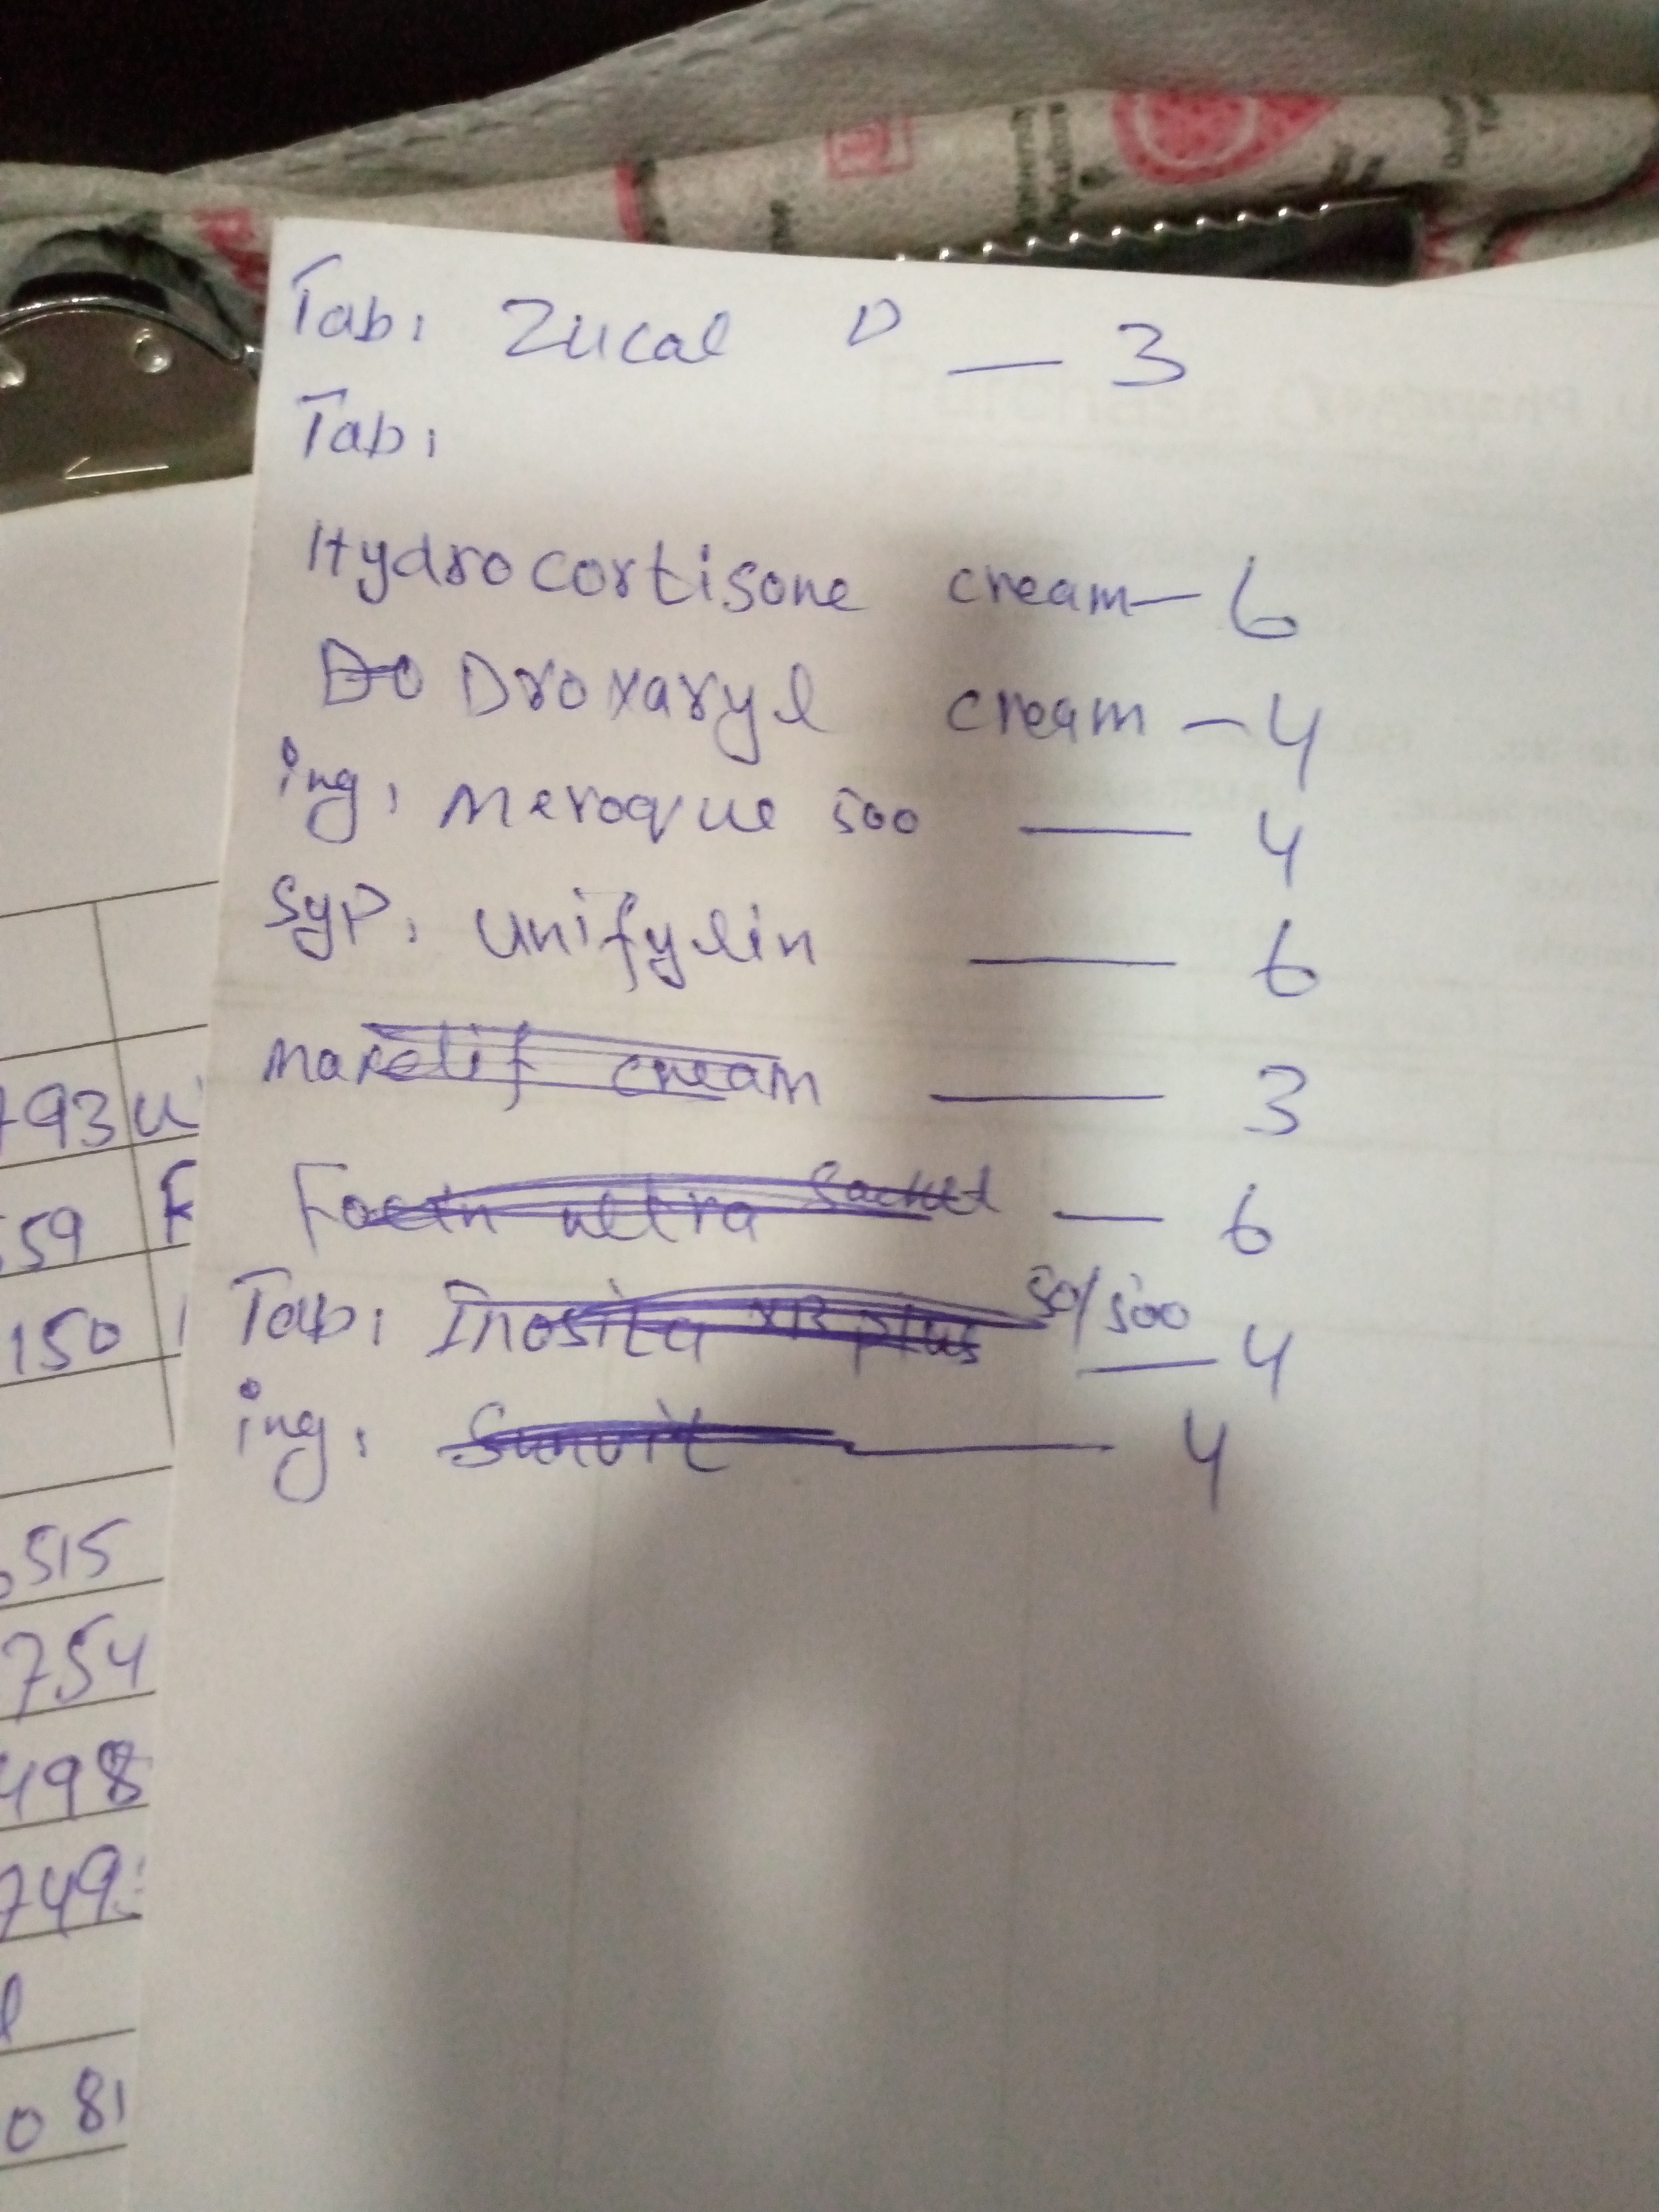 Tab: Zucal D — 3
Tab:
Hydrocortisone cream — 6
Droxaryl cream — 4
ing: Meroque 500 — 4
Syp: unifylin — 6
cream — 3
ultra Sachet — 6
Tab: Inosita XR plus 50/500 — 4
ing: — 4
793
59 F
150
515
754
498
749
081